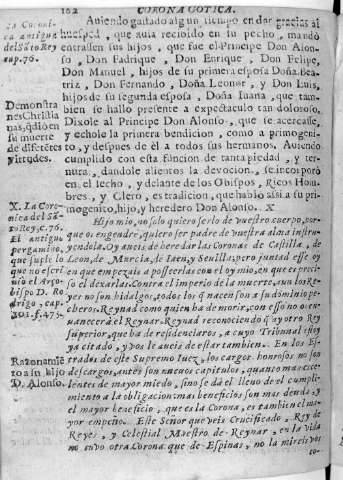 102 CORONA GOTICA.
Auiendo gastado algun tiempo en dar gracias al
huesped, que auia recivido en su pecho, mandó
entrassen sus hijos, que fue el Principe Don Alon-
so, Don Fadrique, Don Enrique, Don Felipe,
Don Manuel, hijos de su primera esposa Doña Bea-
triz, Don Fernando, Doña Leonor, y Don Luis,
hijos de su segunda esposa, Doña Iuana, que tam-
bien se hallo presente a espectaculo tan doloroso,
Dixole al Principe Don Alonso, que se acercasse,
y echole la primera bendicion, como a primogeni-
to, y despues de èl a todos sus hermanos. Auiendo
cumplido con esta funcion de tanta piedad, y ter-
nura, dandole alientos la devocion, se incorporò
en el lecho, y delante de los Obispos, Ricos Hom-
bres, y Clero, es tradicion, que hablò assi a su pri-
mogenito, hijo, y heredero Don Alonso. X
Hijo mio, no solo quiero serlo de vuestro cuerpo, por-
que os engendrè, quiero ser padre de vuestra alma instru-
yendola. Oy aueis de heredar las Coronas de Castilla, de
Leon, de Murcia, de Iaen, y Seuilla; pero juntad esse dia
en que empezais a posseerlas con el oy mio, en que es preci-
so el dexarlas. Contra el imperio de la muerte, aun los Re-
yes no son hidalgos, todos los q̃ nacen son a su dominio pe-
cheros. Reynad como quien ha de morir, con esso no os des-
vanecerà el Reynar. Reynad reconociendo q̃ ay otro Rey
superior, que ha de residenciaros, a cuyo Tribunal estoy
ya citado, y vos le aueis de estar tambien. En los Es-
trados de este Supremo Iuez, los cargos honrosos no son
descargos, antes son nueuos capitulos, quanto mas exce-
lentes de mayor miedo, sino se dà el lleno de el cumpli-
miento a la obligacion: mas beneficios son mas deudas; y
el mayor beneficio, que es la Corona, es tambien el ma-
yor empeño. Este Señor que veis Crucificado, Rey de
Reyes, y Celestial Maestro de Reynar, en la vida
no tuvo otra Corona que de Espinas, no la mireis vos
to-
La Coroni-
ca antigua
del Sāto Rey
cap. 76.
Demonstra
nes Christia
nas, q̃ dio en
su muerte
de discretes
y virtudes.
X. La Coro-
nica del Sā-
to Rey, c. 76.
El antiguo
pergamino,
que suple lo
que no escri
uio el Arço-
bispo D. Ro
drigo, cap.
201. f. 475.
Razonamie
to a su hijo
D. Alonso.